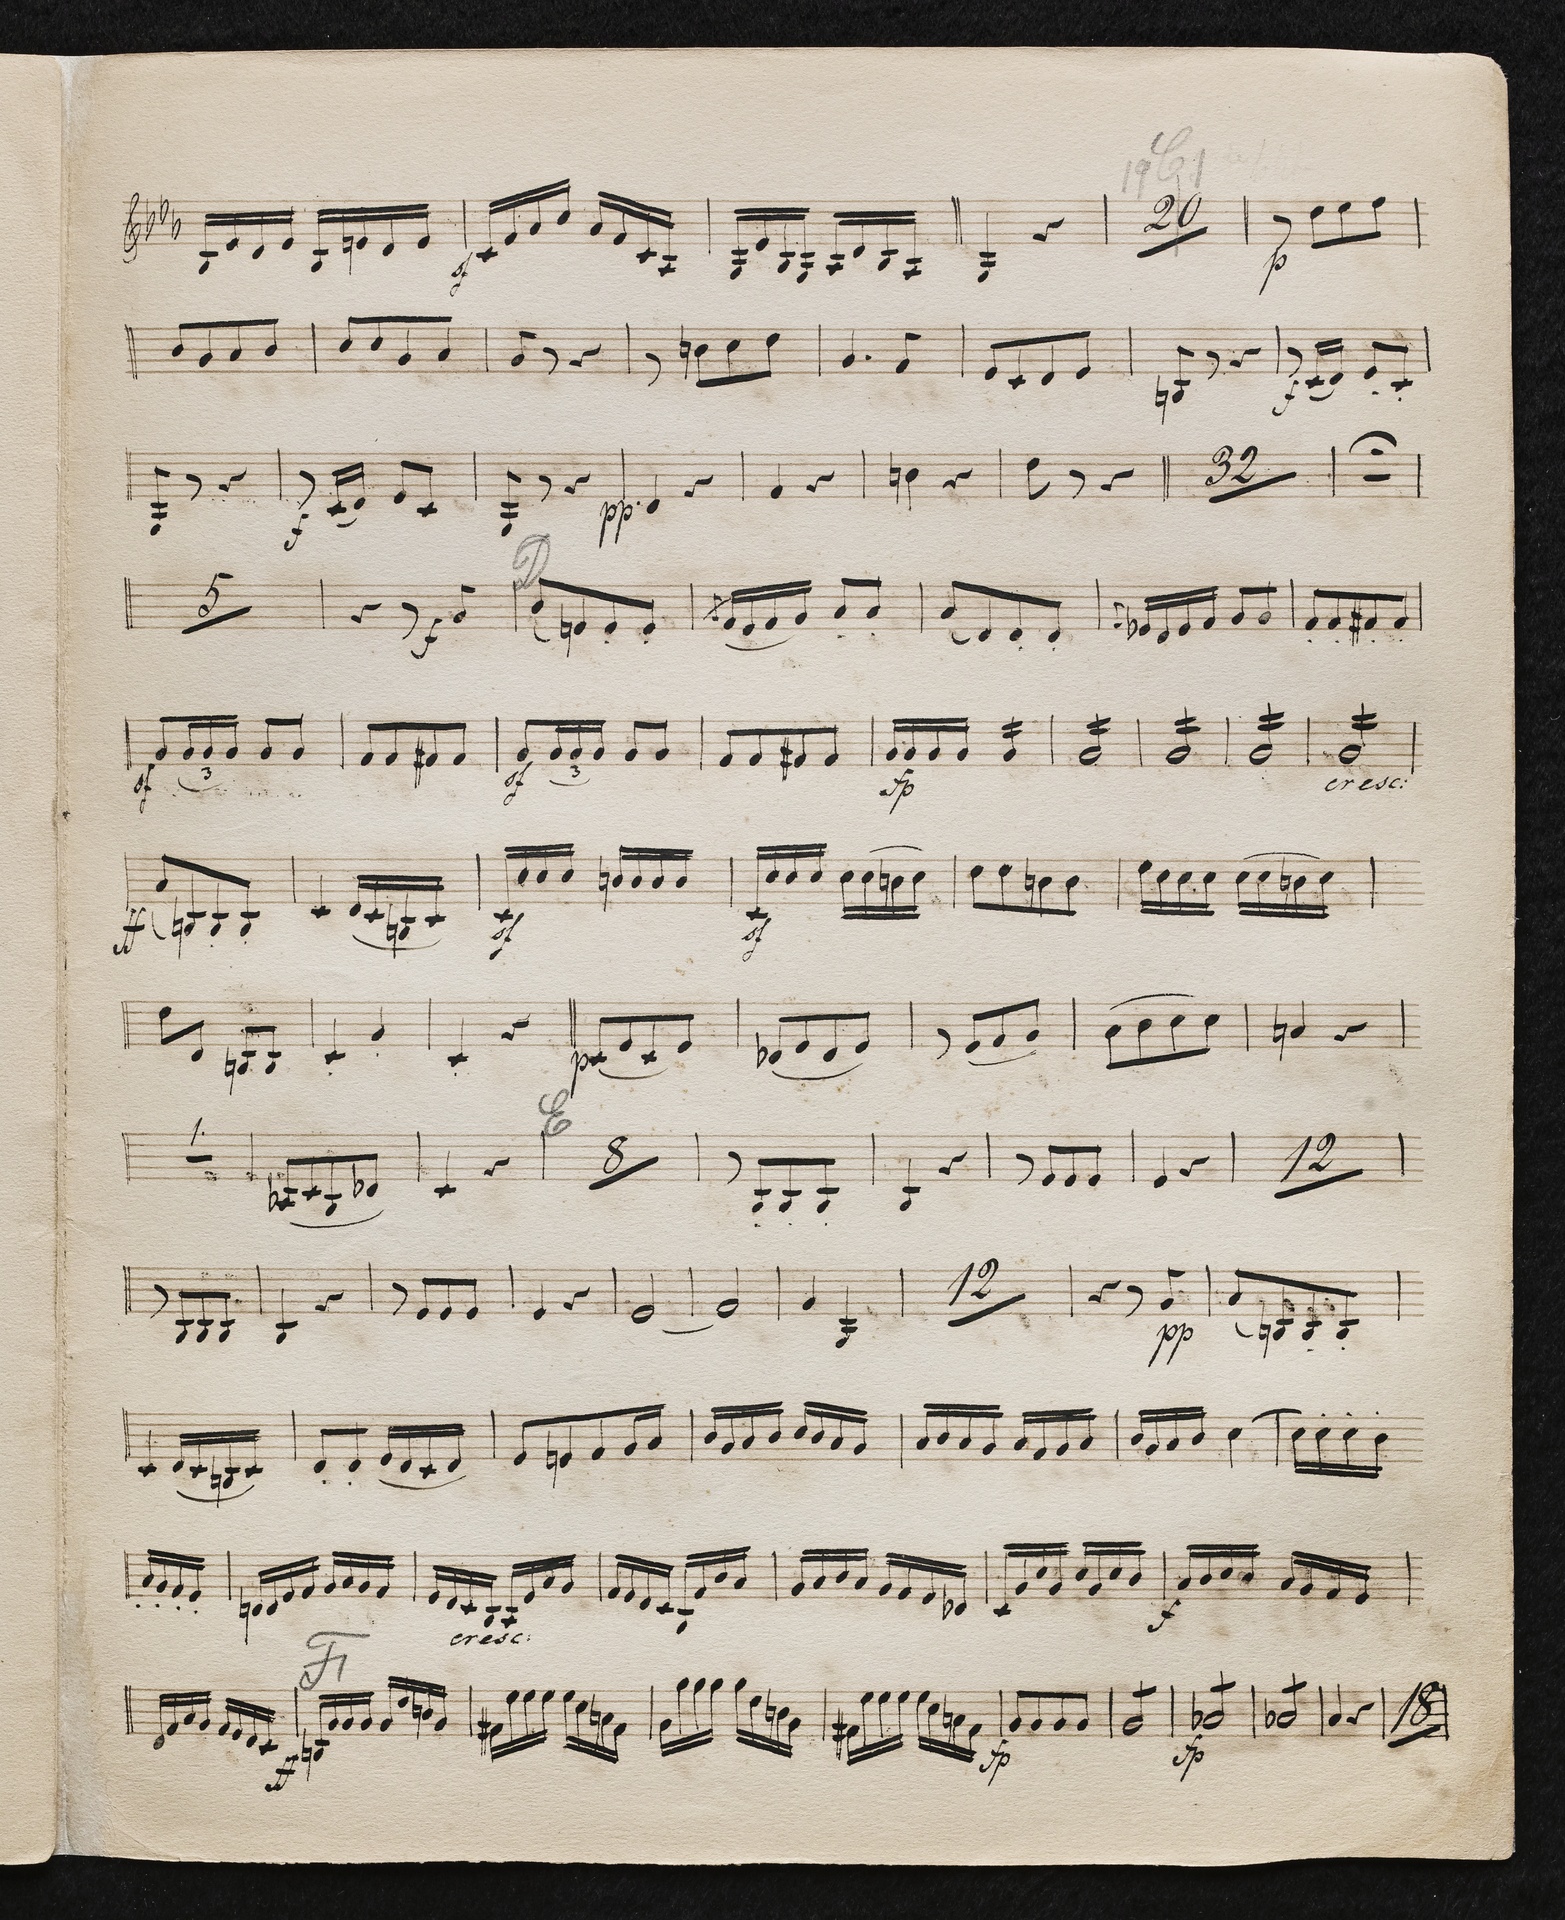 19 C 1
sf 20 p
f
f pp. 32
D
5 f
sf 3 sf 3 fp cresc:
ff sf sf
p
E
1. 8 12
12 pp
cresc: f
F
ff fp fp 18